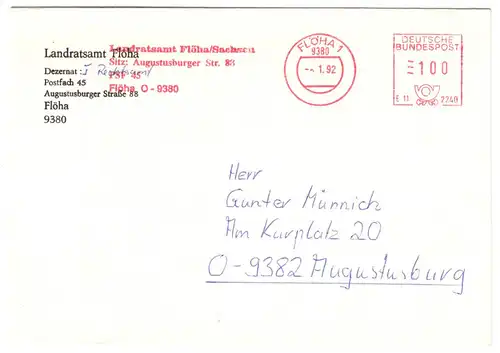 Landratsamt Flöha
Dezernat : I
Postfach 45
Augustusburger Straße 88
Flöha
9380
Landratsamt Flöha/Sachsen
Sitz: Augustusburger Str. 88
PSF 45
Flöha, O - 9380
FLÖHA 1
9380
-- 1. 92
DEUTSCHE
BUNDESPOST
100
E 11 2240
Herr
Gunter Münnich
Am Kurplatz 20
O-9382 Augustusburg